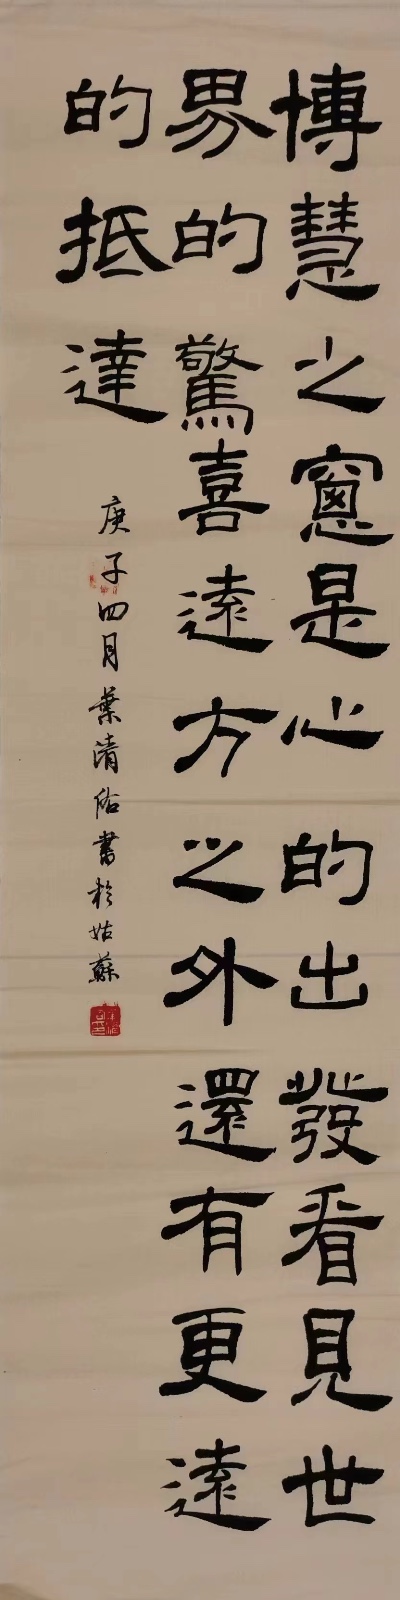 博慧之窻是心的出發看見世
界的驚喜遠方之外還有更遠
的抵達
庚子四月葉清佑書於姑蘇